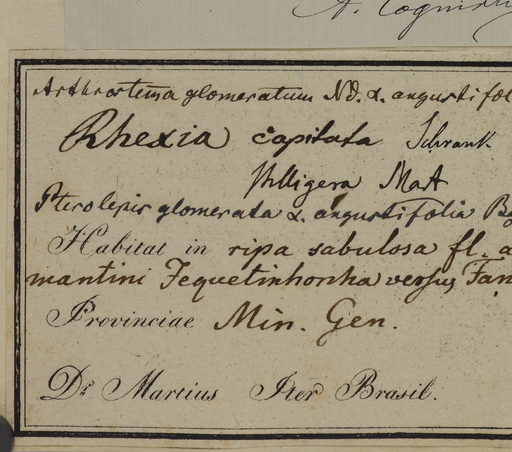 A. Cogniaux
Arthrostema glomeratum Nd. α. angustifol
Rhexia capitata Schrank.
stilligera Mart
Pterolepis glomerata α. angustifolia
Habitat in ripa sabulosa fl. a
mantini Jequetinhonha versus Tan
Provinciae Min. Gen.
Dr. Martius Iter Brasil.